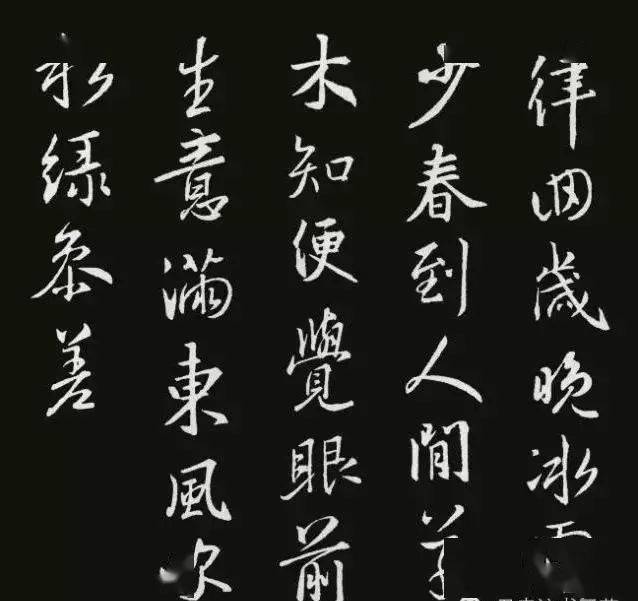 律回歲晚冰
少春到人間草
木知便覺眼前
生意滿東風吹
水綠參差